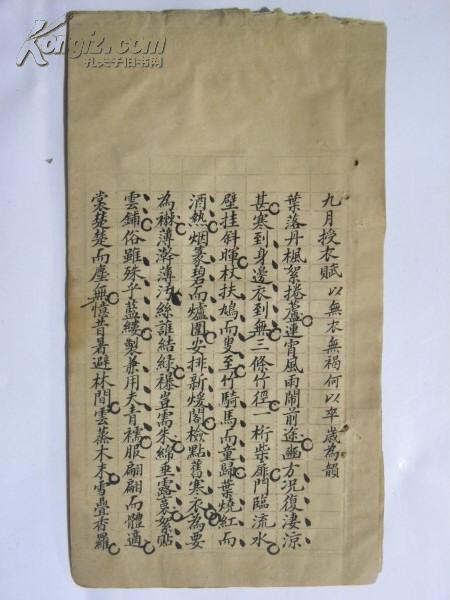 Kongfz.com
孔夫子旧书网
九月授衣賦 以無衣無褐何以卒歲為韻
葉落丹楓絮捲蘆連宵風雨鬧前途幽方況復淒涼
甚寒到身邊衣到無三條竹徑一桁柴扉門臨流水
壁挂斜暉杖扶鳩而叟至竹騎馬而童歸葉燒紅而
酒熱烟篆碧而爐圍安排新煖閣檢點舊寒衣為要
為襋薄澣薄汚絲誰結綠襟豈需朱綿垂露裛絮點
雲鋪俗雖殊乎藍縷製兼用夫青襦服翩翩而體適
裳楚楚而塵無憶昔暑避林間雲蒸木末雪疊香羅